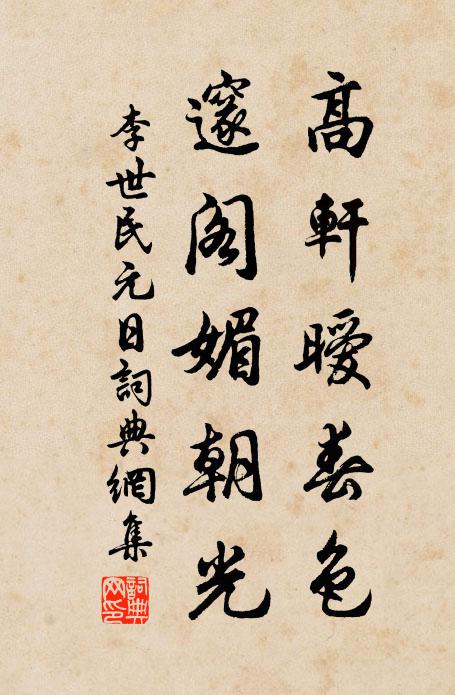 高軒曖春色
邃閣媚朝光
李世民元日詞典網集
詞典網印